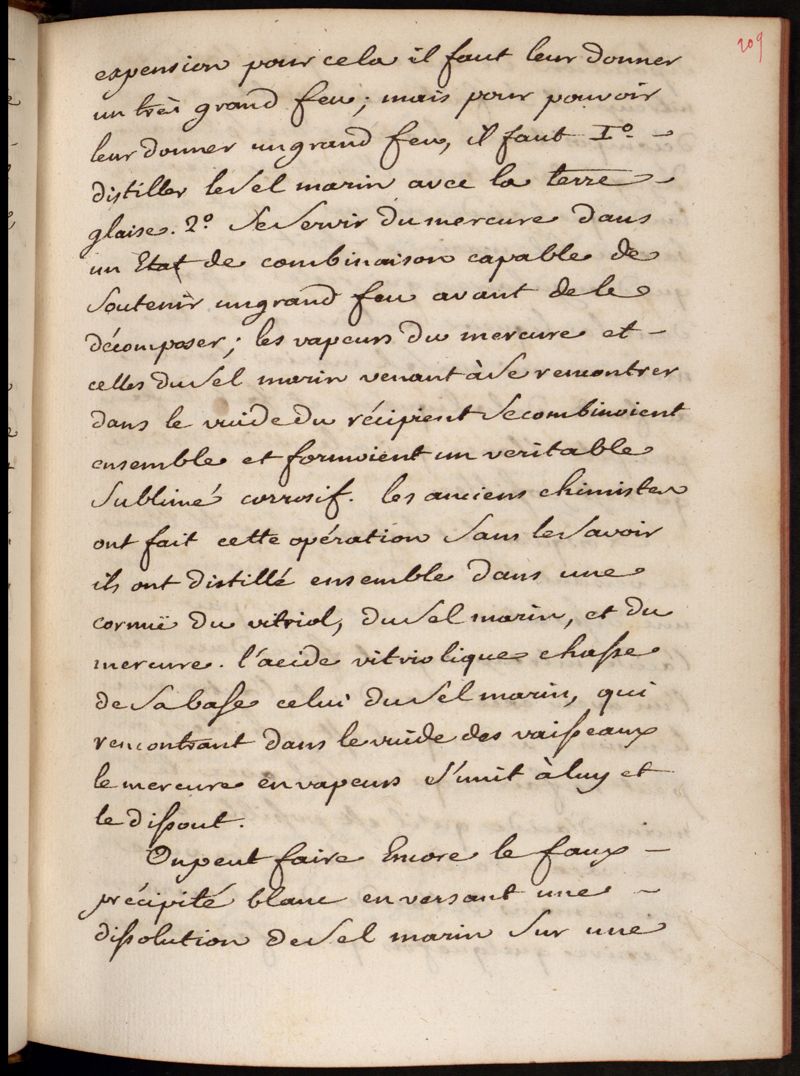 209
expension pour cela il faut leur donner
un très grand feu; mais pour pouvoir
leur donner un grand feu, il faut 1º -
distiller le sel marin avec la terre -
glaise. 2º Se servir du mercure dans
un Etat de combinaison capable de
soutenir un grand feu avant de le
décomposer; les vapeurs du mercure et -
celles du sel marin venant à se rencontrer
dans le vuide du récipient se combinoient
ensemble et formoient un veritable
sublimé corrosif. les anciens chimistes
ont fait cette opération sans le savoir
ils ont distillé ensemble dans une
cornuë du vitriol, du sel marin, et du
mercure. l'acide vitriolique chasse
de sa base celui du sel marin, qui
rencontrant dans le vuide des vaisseaux
le mercure en vapeurs s'unit à luy et
le dissout.
On peut faire Encore le faux -
précipité blanc en versant une -
dissolution de sel marin sur une